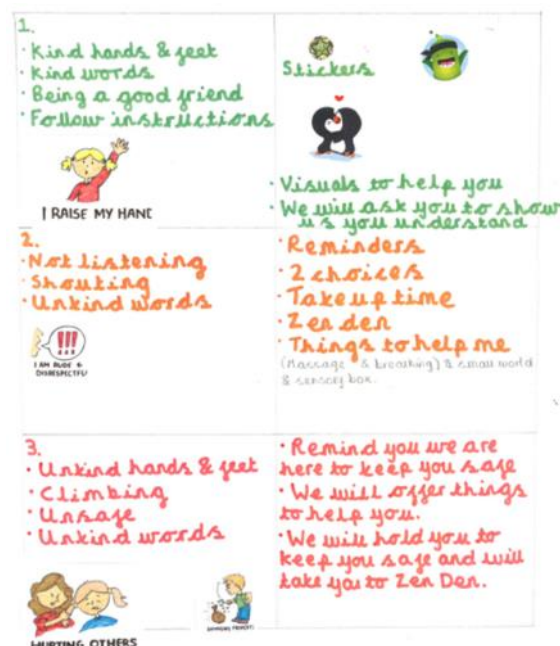 1.
· Kind hands & feet
· Kind words
· Being a good friend
· Follow instructions
I RAISE MY HAND
Stickers
· Visuals to help you
· We will ask you to show
us you understand
2.
· Not listening
· Shouting
· Unkind words
!!!
I AM RUDE &
DISRESPECTFU
· Reminders
· 2 choices
· Take up time
· Zen den
· Things to help me
(Massage & breathing) & small world
& sensory box.
3.
· Unkind hands & feet
· Climbing
· Unsafe
· Unkind words
HURTING OTHERS
· Remind you we are
here to keep you safe
· We will offer things
to help you.
· We will hold you to
keep you safe and will
take you to Zen Den.